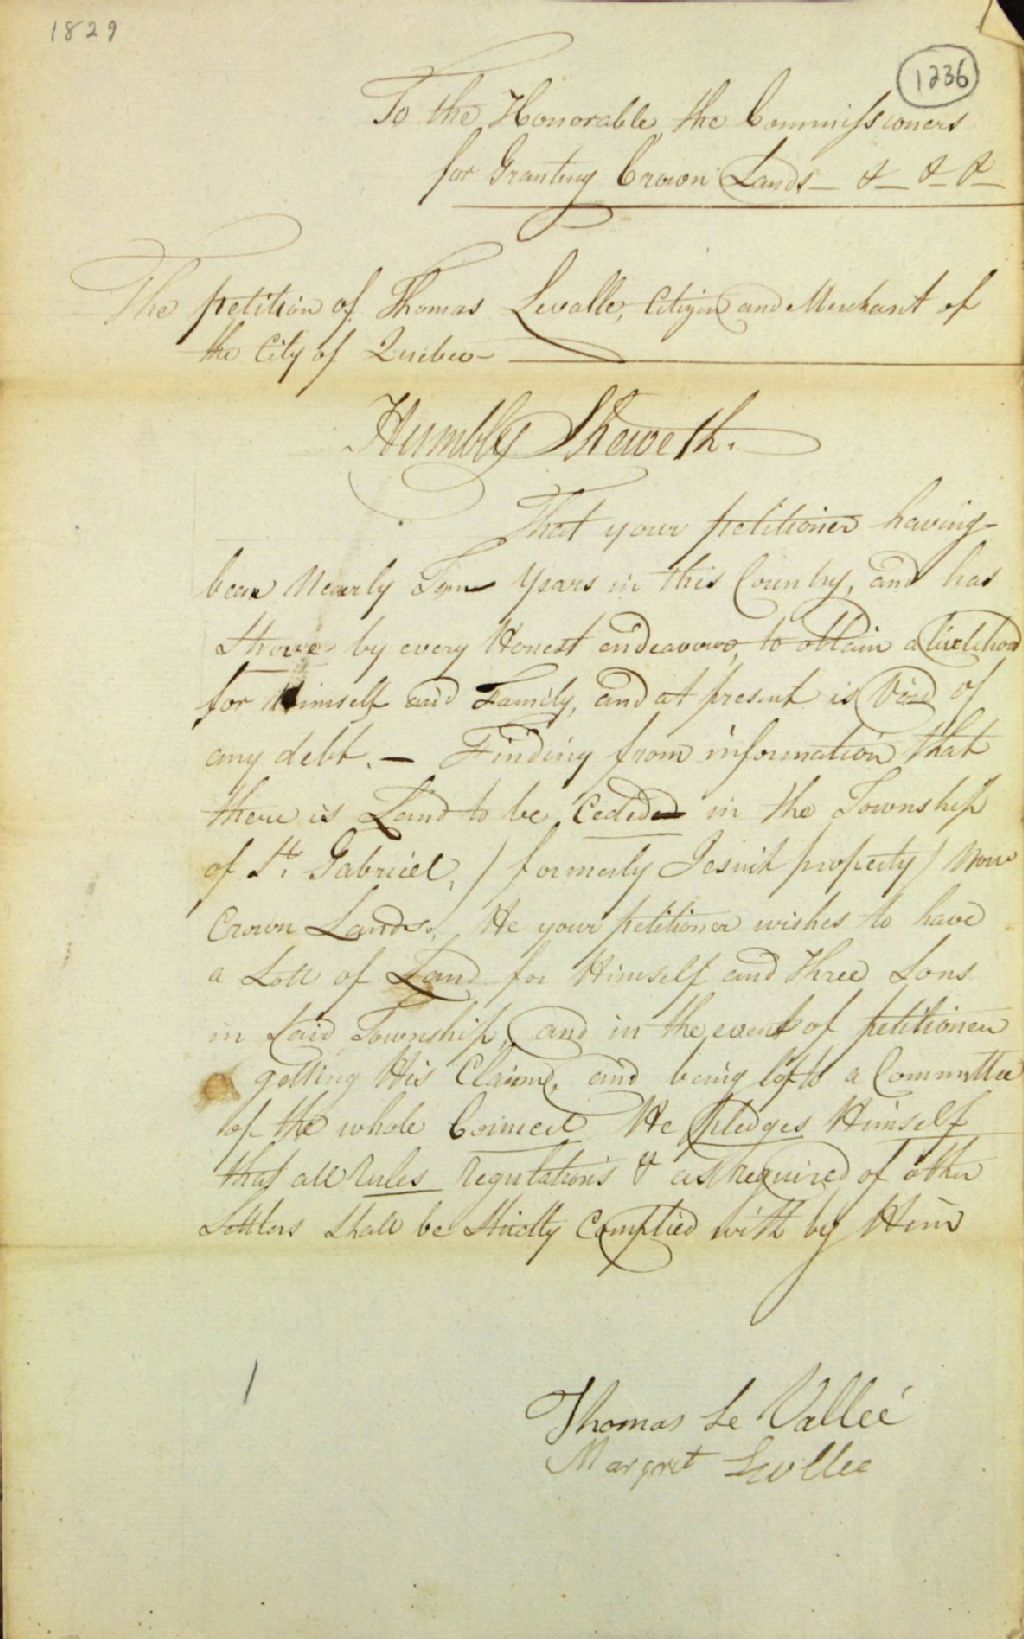 1829
1236
To the Honorable the Commissioners
for Granting Crown Lands — & — & — & —
The petition of Thomas Levalle, Citizen and Merchant of
the City of Quibec —
Humbly Sheweth.
That your petitioner having
bean Nearly Years in this Country, and has
Strove by every Honest endeavour, to obtain a livelihood
for Himself and Family, and at present is Void of
any debt. — Finding from information that
there is Land to be Ceded in the Township
of St. Gabriel, / formerly Jesuit property / Now
Crown Lands. He your petitioner wishes to have
a Lott of Land for Himself and Three Sons
in Said Township, and in the event of petitioner
getting His Claim, and being left to a Committee
of the whole Council He pledges Himself
that all Rules Regulations & as Required of other
Settlers Shall be Strictly Complied with by Him
Thomas Le Valleé
Margret Levllee